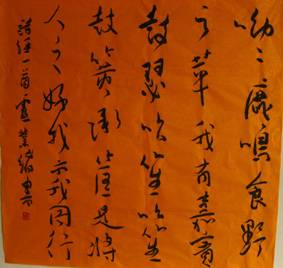 呦〻鹿鳴食野
之苹我有嘉賓
鼓瑟吹笙吹笙
鼓簧承筐是將
人之好我示我周行
詩經一首